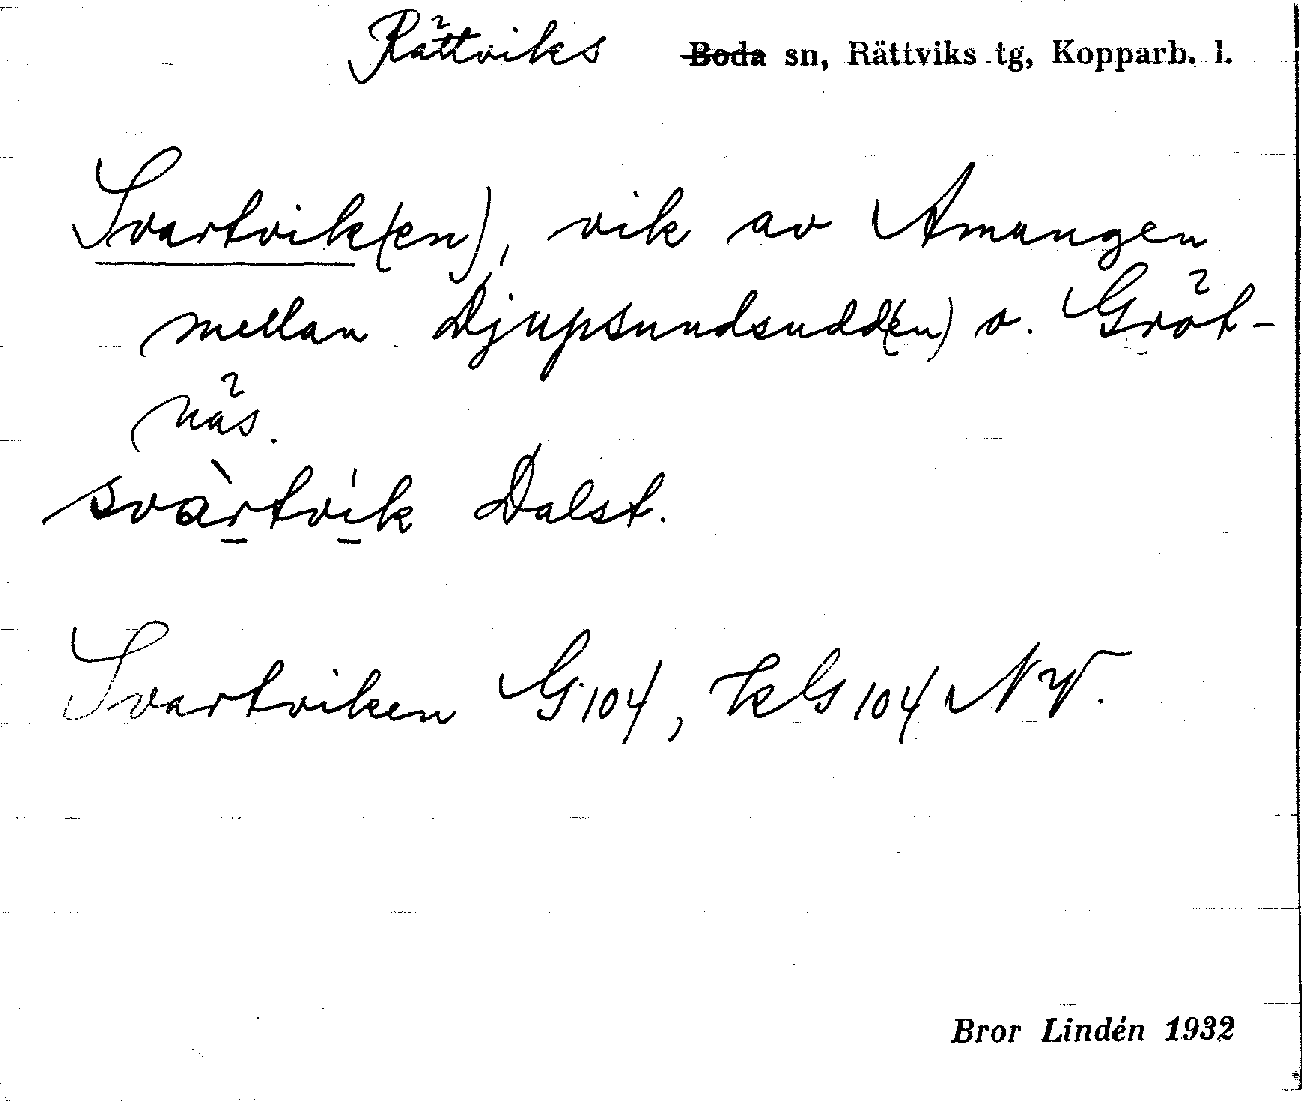 Rättviks Boda sn, Rättviks tg, Kopparb. l.
Svartvik(en), vik av Amungen
mellan Djupsundsudd(en) o. Gröt-
näs.
svàrtvík Dalst.
Svartviken G104, kG 104 NV.
Bror Lindén 1932